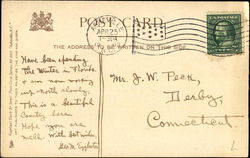 POST CARD
THE ADDRESS TO BE WRITTEN ON THIS SIDE.
APR 25
Have been spending
the Winter in Florida
& am now working
my north slowly.
This is a beautiful
Country here.
Hope you are
well With best wishes
Geo. M.
Mr. J. W. Peck,
Derby,
Connecticut